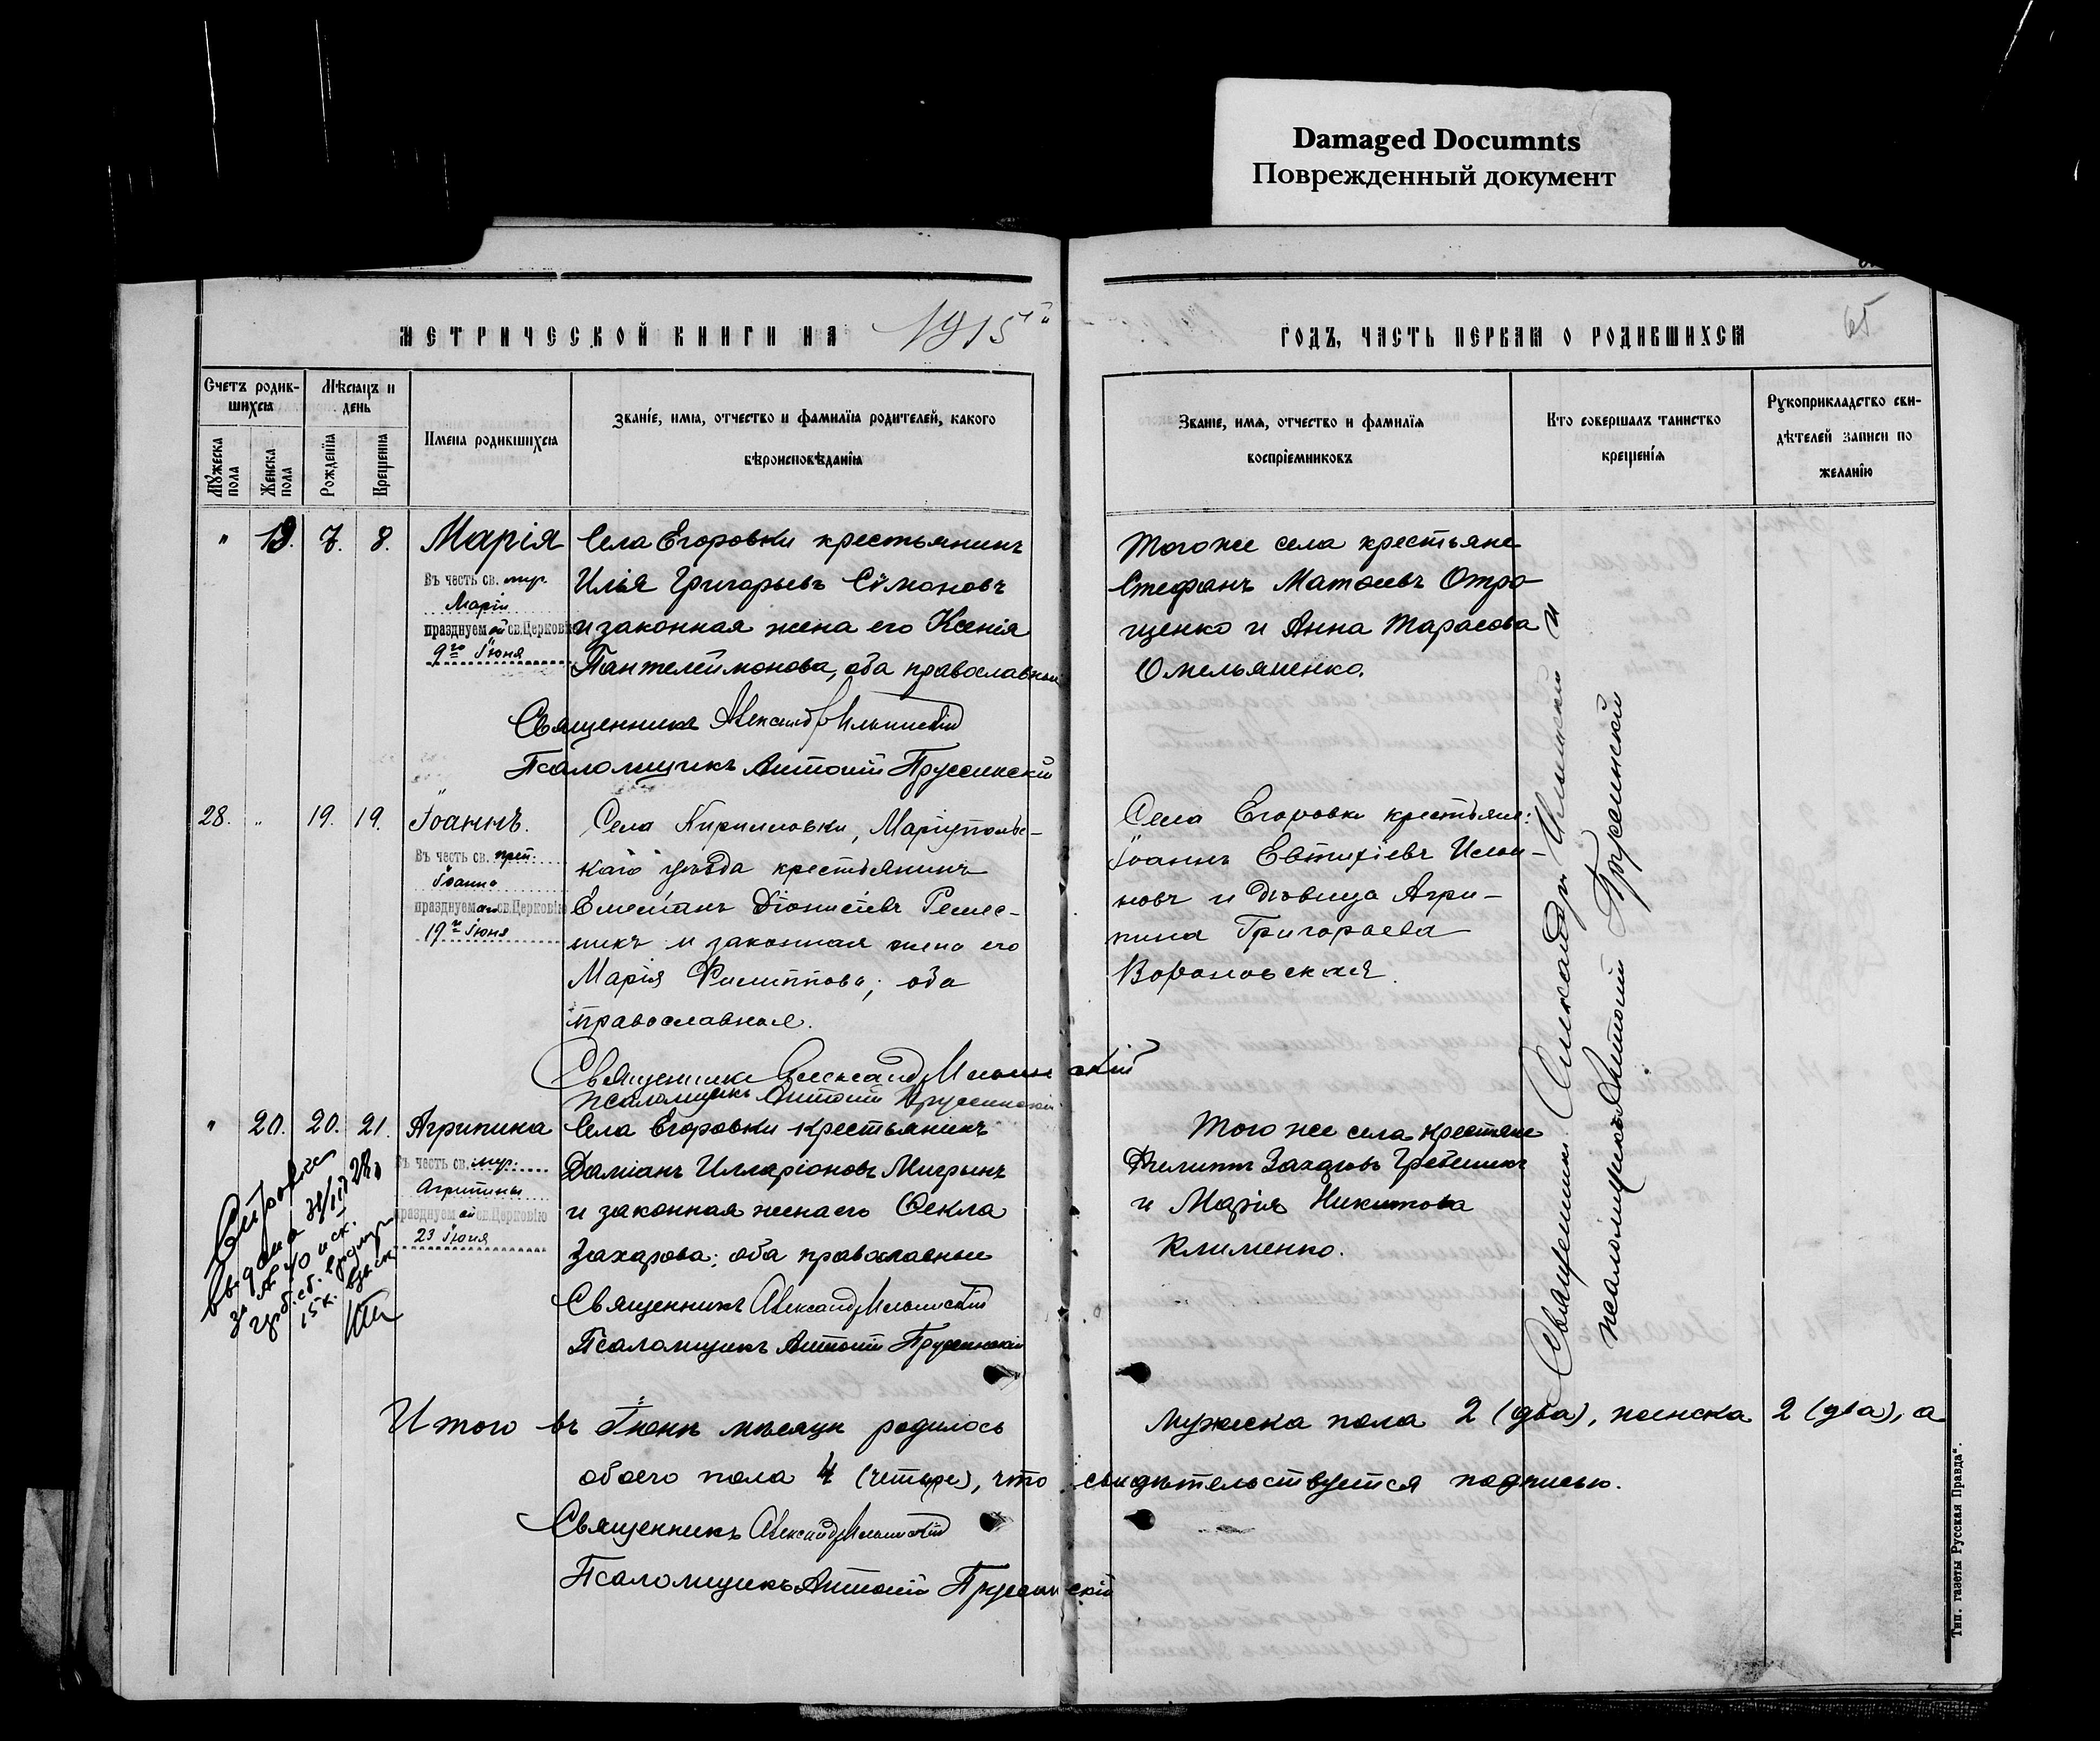 Damaged Documnts
Поврежденный документ
МЕТРИЧЕСКОЙ КНИГИ НА 1915й
ГОДЪ, ЧАСТЬ ПЕРВАЯ О РОДИВШИХСЯ
65
Счетъ родив-
шихся
Мѣсяцъ и
день
Мужеска
пола
Женска
пола
Рожденія
Крещенія
Имена родившихся
Званіе, имя, отчество и фамилія родителей, какого
вѣроисповѣданія
Званіе, имя, отчество и фамилія
воспріемниковъ
Кто совершалъ таинство
крещенія
Рукоприкладство сви-
дѣтелей записи по
желанію
" 19. 7. 8. Марія
Въ честь св. мур.
Маріи
празднуемой св. Церковію
9го Іюня
Села Егоровки крестьянинъ
Илья Григорьевъ Симоновъ
и законная жена его Ксенія
Пантелеймонова, оба православные
Священникъ Александръ Ильинскій
Псаломщикъ Антоній Пруссинскій
Того же села крестьяне
Стефанъ Матѳіевъ Отро-
щенко и Анна Тарасова
Омельяненко.
28. " 19. 19. Іоаннъ.
Въ честь св. преп.
Іоанна
празднуемаго св. Церковію
19го Іюня
Села Кирилловки, Маріуполь-
каго уѣзда крестьянинъ
Емеліанъ Діонисіевъ Ремес-
никъ и законная жена его
Марія Филиппова; оба
православные.
Священникъ Александръ Ильинскій
псаломщикъ Антоній Пруссинскій
Села Егоровки крестьяне:
Іоаннъ Евтихіевъ
новъ и дѣвица Агри-
пина Григорьева
Вороновская.
" 20. 20. 21. Агрипина
Въ честь св. мур.
Агрипины
празднуемой св. Церковію
23 Іюня
Села Егоровки крестьянинъ
Даміанъ Илларіоновъ Мигрынъ
и законная жена его Ѳекла
Захарова; оба православные
Священникъ Александръ Ильинскій
Псаломщикъ Антоній Пруссинскій
Того же села крестьяне
Филиппъ Захаровъ Гребеникъ
и Марія Никитова
Клименко.
Священникъ Александръ Ильинскій и
псаломщикъ Антоній Пруссинскій
выдана
за № 40
15 к.
Итого въ Іюнѣ мѣсяцѣ родилось мужеска пола 2 (два), женска 2 (два), а
обоего пола 4 (четыре), что свидѣтельствуется подписью.
Священникъ Александръ Ильинскій
Псаломщикъ Антоній Пруссинскій
Тип. газеты Русская Правда".